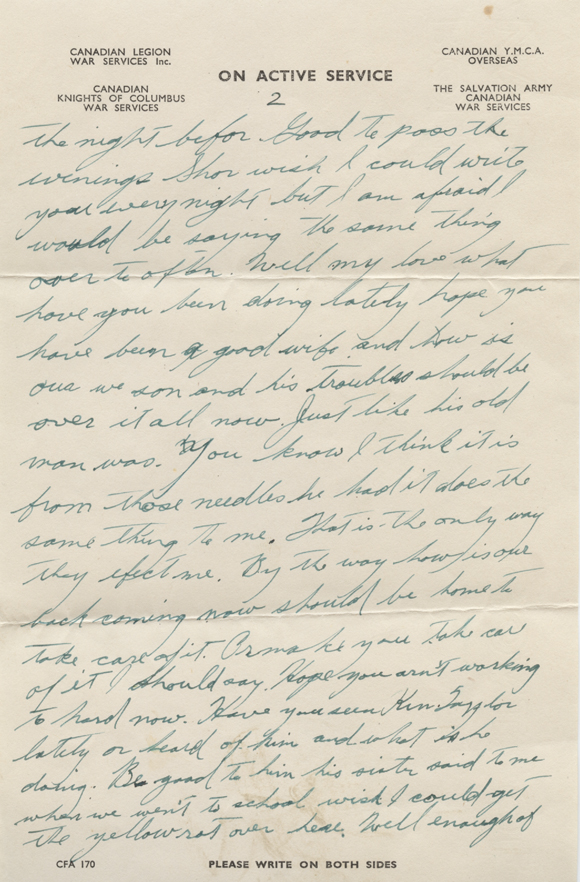 CANADIAN LEGION
WAR SERVICES Inc.
CANADIAN
KNIGHTS OF COLUMBUS
WAR SERVICES
ON ACTIVE SERVICE
CANADIAN Y.M.C.A.
OVERSEAS
THE SALVATION ARMY
CANADIAN
WAR SERVICES
2
the night befor. Good to pass the
evenings Shor wish I could write
your every night but I am afraid I
would be saying the same thing
over to often. Well my love what
have you been doing lately hope you
have been a good wife and how is
our we son and his troubles should be
over it all now. Just like his old
man was. You know I think it is
from those needles he had it does the
same thing to me. That is the only way
they efect me. By the way how is our
back coming now should be home to
take care of it. Or make you take car
of it I should say. Hope you arn't working
to hard now. Have you seen Ken Taylor
lately or heard of him and what is he
doing. Be good to him his sister said to me
when we went to school wish I could get
the yellow rat over hear. Well enough of
CFA 170
PLEASE WRITE ON BOTH SIDES